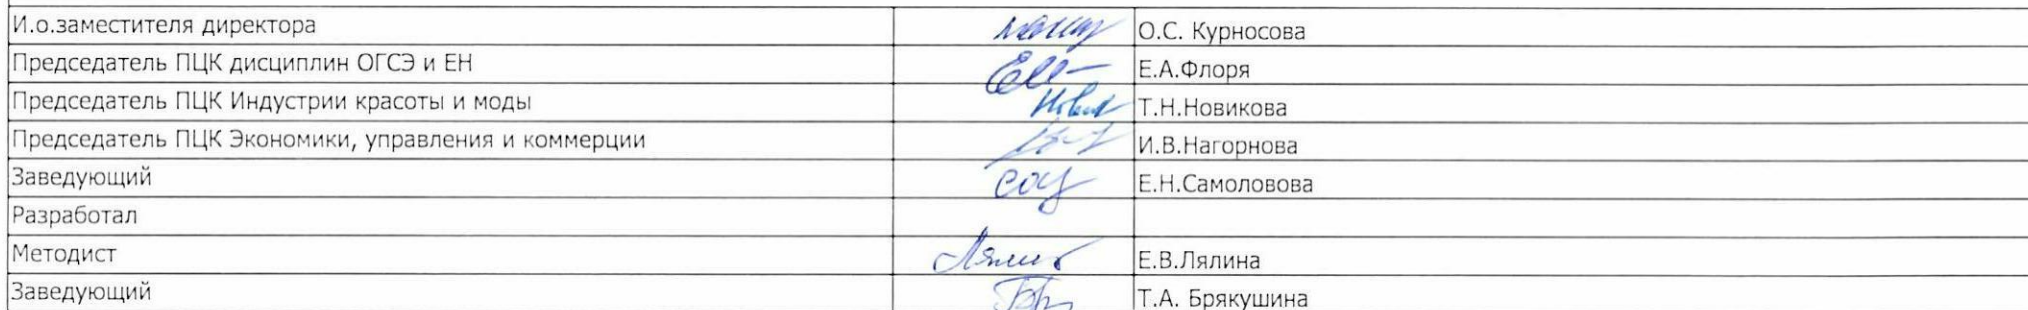 И.о.заместителя директора О.С. Курносова
Председатель ПЦК дисциплин ОГСЭ и ЕН Е.А.Флоря
Председатель ПЦК Индустрии красоты и моды Т.Н.Новикова
Председатель ПЦК Экономики, управления и коммерции И.В.Нагорнова
Заведующий Е.Н.Самоловова
Разработал
Методист Е.В.Лялина
Заведующий Т.А. Брякушина